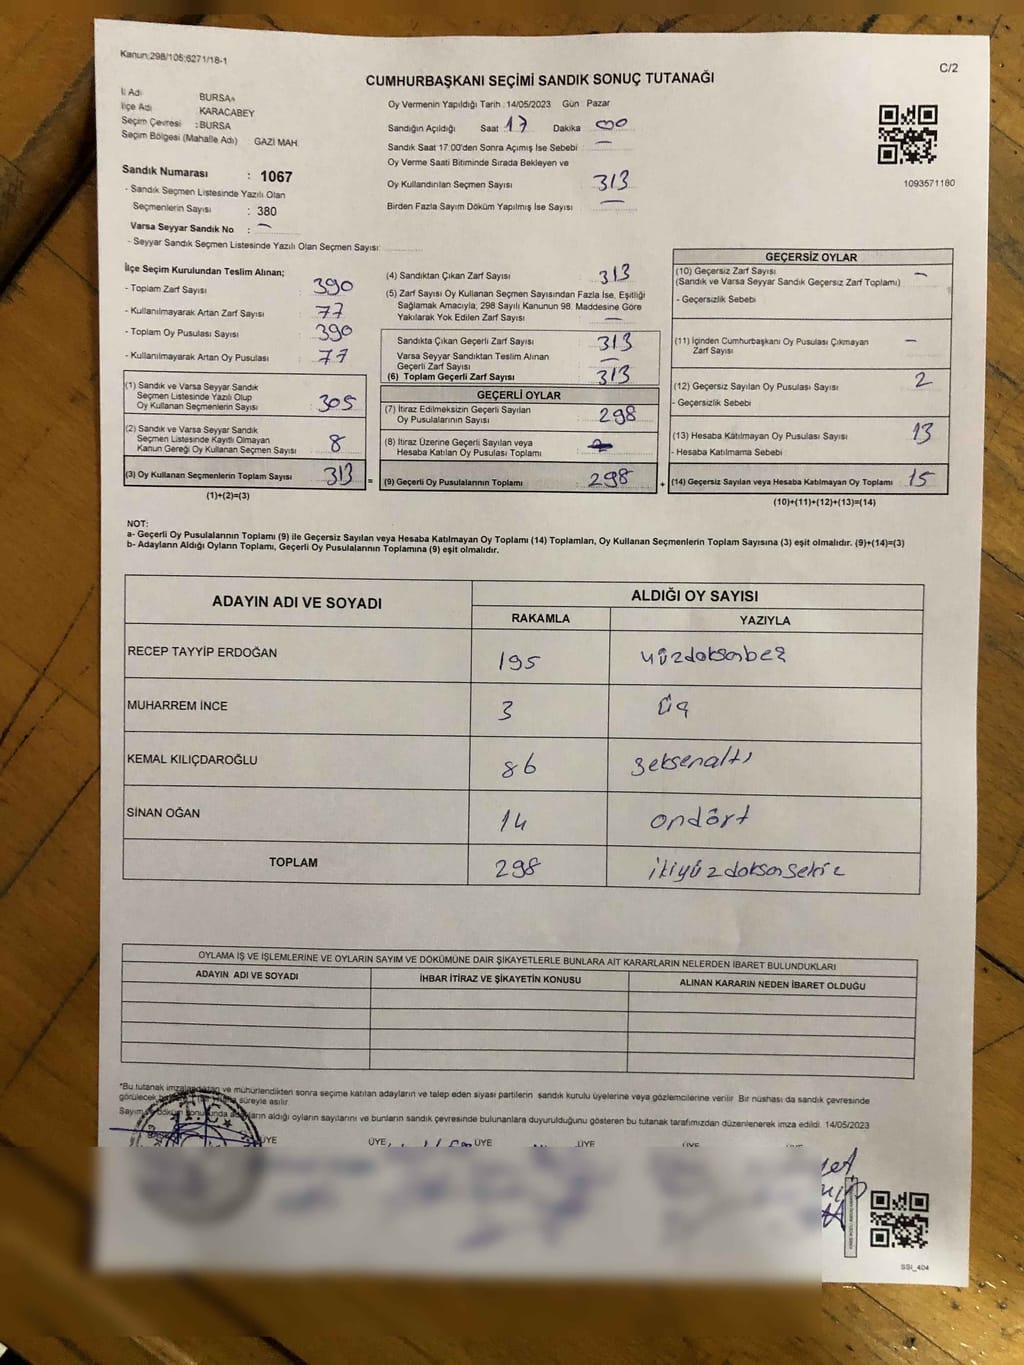 Kanun:298/105;6271/18-1
C/2
CUMHURBAŞKANI SEÇİMİ SANDIK SONUÇ TUTANAĞI
İl Adı : BURSA
İlçe Adı KARACABEY
Seçim Çevresi : BURSA
Seçim Bölgesi (Mahalle Adı) GAZİ MAH.
Sandık Numarası : 1067
- Sandık Seçmen Listesinde Yazılı Olan
Seçmenlerin Sayısı : 380
Varsa Seyyar Sandık No : —
- Seyyar Sandık Seçmen Listesinde Yazılı Olan Seçmen Sayısı:
Oy Vermenin Yapıldığı Tarih : 14/05/2023 Gün Pazar
Sandığın Açıldığı Saat 17 Dakika 00
Sandık Saat 17:00'den Sonra Açımış İse Sebebi —
Oy Verme Saati Bitiminde Sırada Bekleyen ve
Oy Kullandırılan Seçmen Sayısı 313
Birden Fazla Sayım Döküm Yapılmış İse Sayısı —
1093571180
İlçe Seçim Kurulundan Teslim Alınan;
- Toplam Zarf Sayısı : 390
- Kullanılmayarak Artan Zarf Sayısı : 77
- Toplam Oy Pusulası Sayısı : 390
- Kullanılmayarak Artan Oy Pusulası : 77
(1) Sandık ve Varsa Seyyar Sandık
Seçmen Listesinde Yazılı Olup
Oy Kullanan Seçmenlerin Sayısı : 305
(2) Sandık ve Varsa Seyyar Sandık
Seçmen Listesinde Kayıtlı Olmayan
Kanun Gereği Oy Kullanan Seçmen Sayısı : 8
(3) Oy Kullanan Seçmenlerin Toplam Sayısı : 313
(1)+(2)=(3)
(4) Sandıktan Çıkan Zarf Sayısı : 313
(5) Zarf Sayısı Oy Kullanan Seçmen Sayısından Fazla İse, Eşitliği
Sağlamak Amacıyla; 298 Sayılı Kanunun 98. Maddesine Göre
Yakılarak Yok Edilen Zarf Sayısı : —
Sandıkta Çıkan Geçerli Zarf Sayısı : 313
Varsa Seyyar Sandıktan Teslim Alınan
Geçerli Zarf Sayısı : —
(6) Toplam Geçerli Zarf Sayısı : 313
GEÇERLİ OYLAR
(7) İtiraz Edilmeksizin Geçerli Sayılan
Oy Pusulalarının Sayısı : 298
(8) İtiraz Üzerine Geçerli Sayılan veya
Hesaba Katılan Oy Pusulası Toplamı :
= (9) Geçerli Oy Pusulalarının Toplamı : 298 +
GEÇERSİZ OYLAR
(10) Geçersiz Zarf Sayısı —
(Sandık ve Varsa Seyyar Sandık Geçersiz Zarf Toplamı)
- Geçersizlik Sebebi
(11) İçinden Cumhurbaşkanı Oy Pusulası Çıkmayan —
Zarf Sayısı
(12) Geçersiz Sayılan Oy Pusulası Sayısı 2
- Geçersizlik Sebebi
(13) Hesaba Katılmayan Oy Pusulası Sayısı 13
- Hesaba Katılmama Sebebi
(14) Geçersiz Sayılan veya Hesaba Katılmayan Oy Toplamı 15
(10)+(11)+(12)+(13)=(14)
NOT:
a- Geçerli Oy Pusulalarının Toplamı (9) ile Geçersiz Sayılan veya Hesaba Katılmayan Oy Toplamı (14) Toplamları, Oy Kullanan Seçmenlerin Toplam Sayısına (3) eşit olmalıdır. (9)+(14)=(3)
b- Adayların Aldığı Oyların Toplamı, Geçerli Oy Pusulalarının Toplamına (9) eşit olmalıdır.
ADAYIN ADI VE SOYADI
ALDIĞI OY SAYISI
RAKAMLA YAZIYLA
RECEP TAYYİP ERDOĞAN 195 yüzdoksanbeş
MUHARREM İNCE 3 üç
KEMAL KILIÇDAROĞLU 86 seksenaltı
SİNAN OĞAN 14 ondört
TOPLAM 298 ikiyüzdoksansekiz
OYLAMA İŞ VE İŞLEMLERİNE VE OYLARIN SAYIM VE DÖKÜMÜNE DAİR ŞİKAYETLERLE BUNLARA AİT KARARLARIN NELERDEN İBARET BULUNDUKLARI
ADAYIN ADI VE SOYADI İHBAR İTİRAZ VE ŞİKAYETİN KONUSU ALINAN KARARIN NEDEN İBARET OLDUĞU
*Bu tutanak imzalandıktan ve mühürlendikten sonra seçime katılan adayların ve talep eden siyasi partilerin sandık kurulu üyelerine veya gözlemcilerine verilir. Bir nüshası da sandık çevresinde
görülecek süreyle asılır.
Sayım ve döküm sonunda adayların aldığı oyların sayılarını ve bunların sandık çevresinde bulunanlara duyurulduğunu gösteren bu tutanak tarafımızdan düzenlenerek imza edildi. 14/05/2023
ÜYE ÜYE ÜYE ÜYE ÜYE ÜYE
T.C.
SSI_404